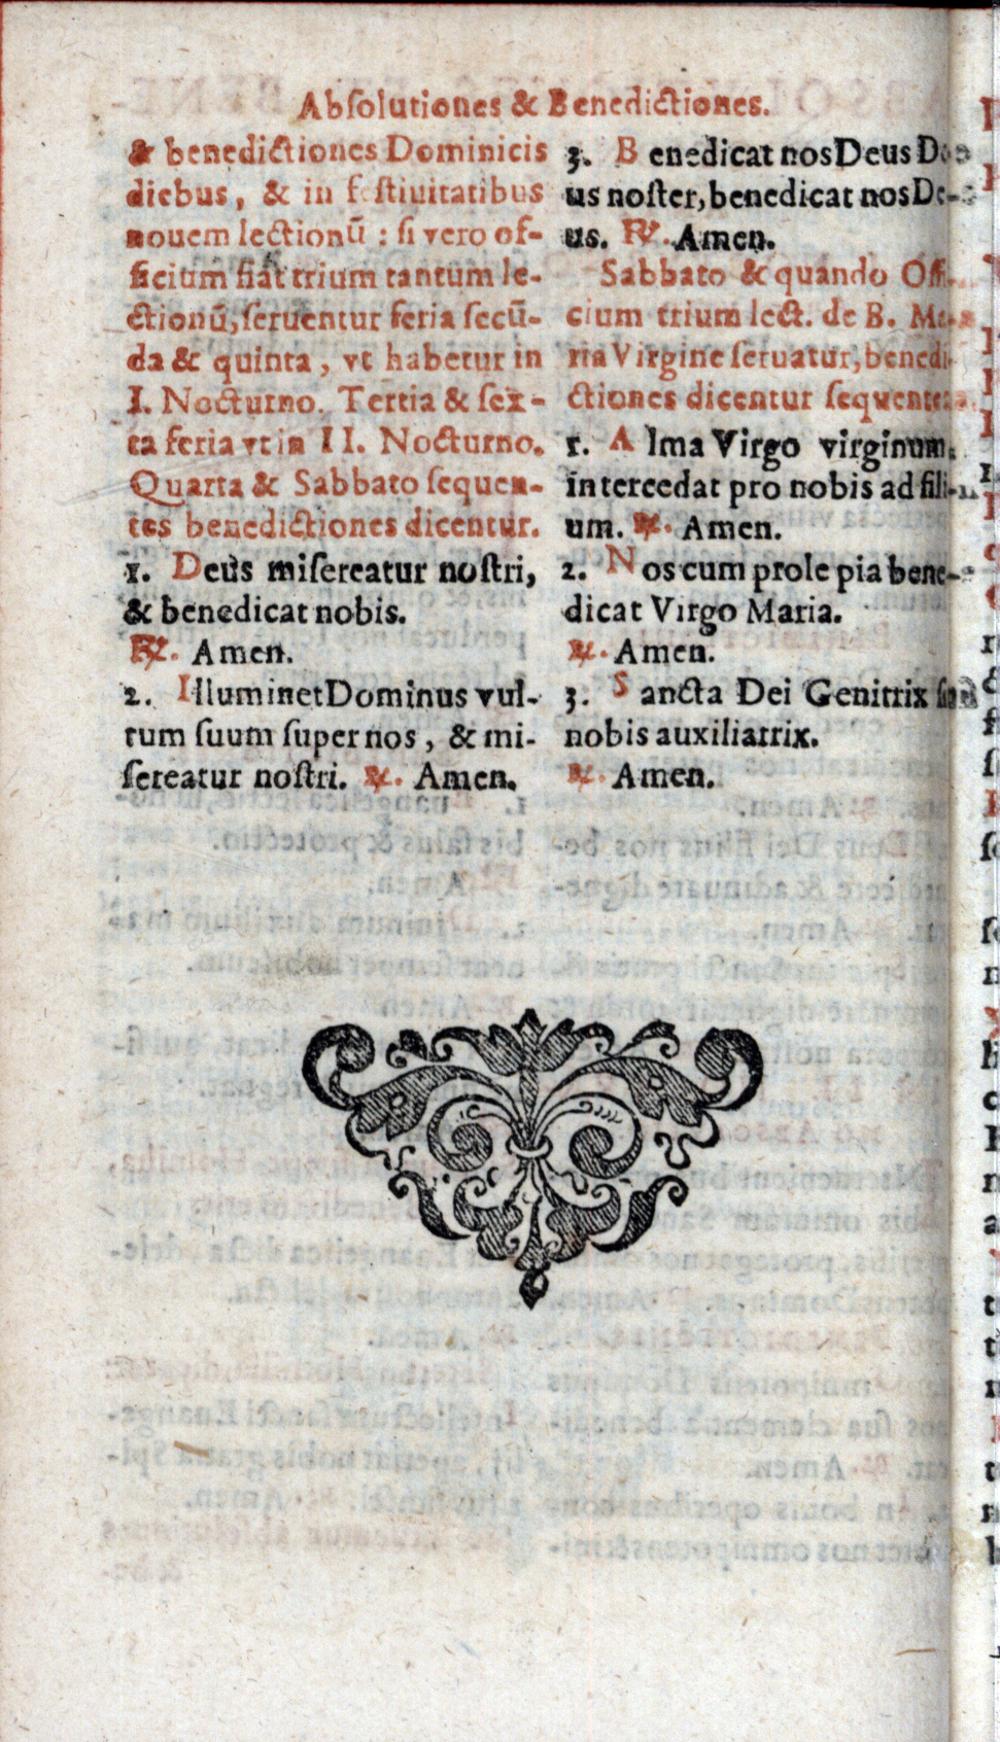 Abſolutiones & Benedictiones.
& benedictiones Dominicis
diebus, & in feſtiuitatibus
nouem lectionū : ſi vero of-
ficium fiat trium tantum le-
ctionū, ſeruentur feria ſecū-
da & quinta, vt habetur in
I. Nocturno. Tertia & ſex-
ta feria vt in II. Nocturno.
Quarta & Sabbato ſequen-
tes benedictiones dicentur.
1. Deus miſereatur noſtri,
& benedicat nobis.
℟. Amen.
2. Illuminet Dominus vul-
tum ſuum ſuper nos, & mi-
ſereatur noſtri. ℟. Amen.
3. Benedicat nos Deus De-
us noſter, benedicat nos De-
us. ℟. Amen.
Sabbato & quando Offi-
cium trium lect. de B. Ma-
ria Virgine ſeruatur, benedi-
ctiones dicentur ſequentes.
1. Alma Virgo virginum,
intercedat pro nobis ad fili-
um. ℟. Amen.
2. Nos cum prole pia bene-
dicat Virgo Maria.
℟. Amen.
3. Sancta Dei Genitrix ſit
nobis auxiliatrix.
℟. Amen.